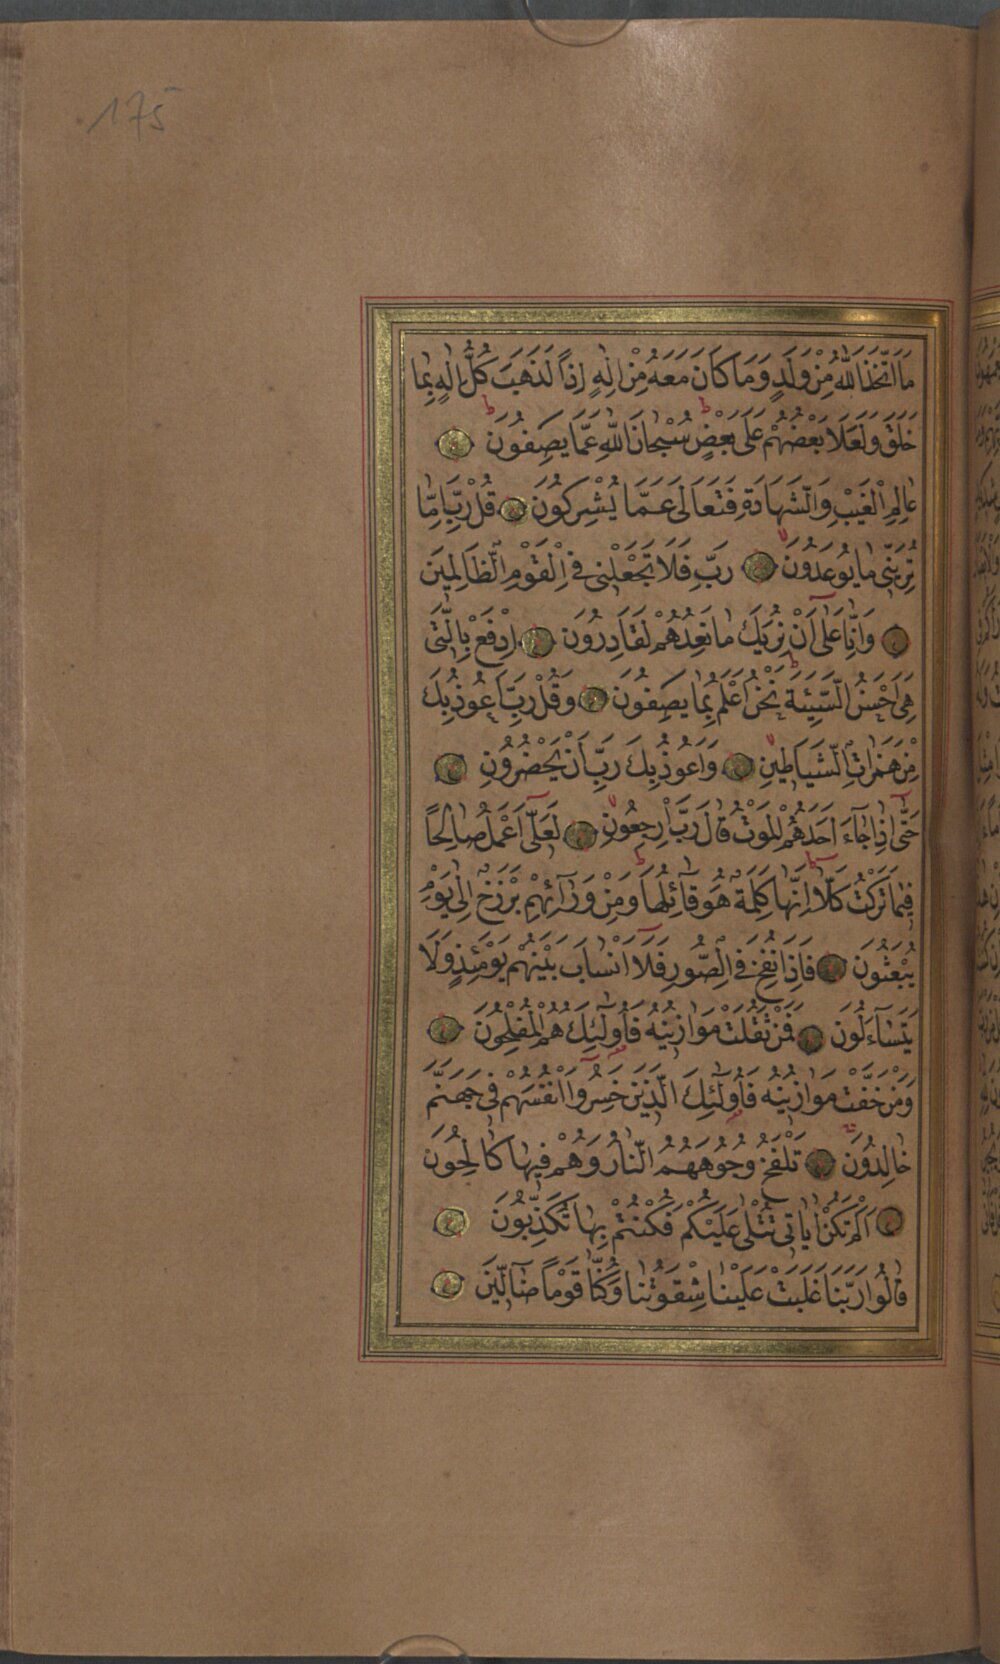 175
مَا اتَّخَذَ اللّٰهُ مِنْ وَلَدٍ وَمَا كَانَ مَعَهُ مِنْ اِلٰهٍ اِذاً لَذَهَبَ كُلُّ اِلٰهٍ بِمَا
خَلَقَ وَلَعَلَا بَعْضُهُمْ عَلٰى بَعْضٍ سُبْحَانَ اللّٰهِ عَمَّا يَصِفُونَ
عَالِمِ الْغَيْبِ وَالشَّهَادَةِ فَتَعَالٰى عَمَّا يُشْرِكُونَ قُلْ رَبِّ اِمَّا
تُرِيَنّٖى مَا يُوعَدُونَ رَبِّ فَلَا تَجْعَلْنٖى فِى الْقَوْمِ الظَّالِمٖينَ
وَاِنَّا عَلٰٓى اَنْ نُرِيَكَ مَا نَعِدُهُمْ لَقَادِرُونَ اِدْفَعْ بِالَّتٖى
هِىَ اَحْسَنُ السَّيِّئَةَ نَحْنُ اَعْلَمُ بِمَا يَصِفُونَ وَقُلْ رَبِّ اَعُوذُ بِكَ
مِنْ هَمَزَاتِ الشَّيَاطٖينِ وَاَعُوذُ بِكَ رَبِّ اَنْ يَحْضُرُونِ
حَتّٰٓى اِذَا جَٓاءَ اَحَدَهُمُ الْمَوْتُ قَالَ رَبِّ ارْجِعُونِ لَعَلّٖٓى اَعْمَلُ صَالِحًا
فٖيمَا تَرَكْتُ كَلَّا اِنَّهَا كَلِمَةٌ هُوَ قَٓائِلُهَا وَمِنْ وَرَٓائِهِمْ بَرْزَخٌ اِلٰى يَوْمِ
يُبْعَثُونَ فَاِذَا نُفِخَ فِى الصُّورِ فَلَٓا اَنْسَابَ بَيْنَهُمْ يَوْمَئِذٍ وَلَا
يَتَسَٓاءَلُونَ فَمَنْ ثَقُلَتْ مَوَازٖينُهُ فَاُولٰٓئِكَ هُمُ الْمُفْلِحُونَ
وَمَنْ خَفَّتْ مَوَازٖينُهُ فَاُولٰٓئِكَ الَّذٖينَ خَسِرُٓوا اَنْفُسَهُمْ فٖى جَهَنَّمَ
خَالِدُونَ تَلْفَحُ وُجُوهَهُمُ النَّارُ وَهُمْ فٖيهَا كَالِحُونَ
اَلَمْ تَكُنْ اٰيَاتٖى تُتْلٰى عَلَيْكُمْ فَكُنْتُمْ بِهَا تُكَذِّبُونَ
قَالُوا رَبَّنَا غَلَبَتْ عَلَيْنَا شِقْوَتُنَا وَكُنَّا قَوْماً ضَٓالّٖينَ